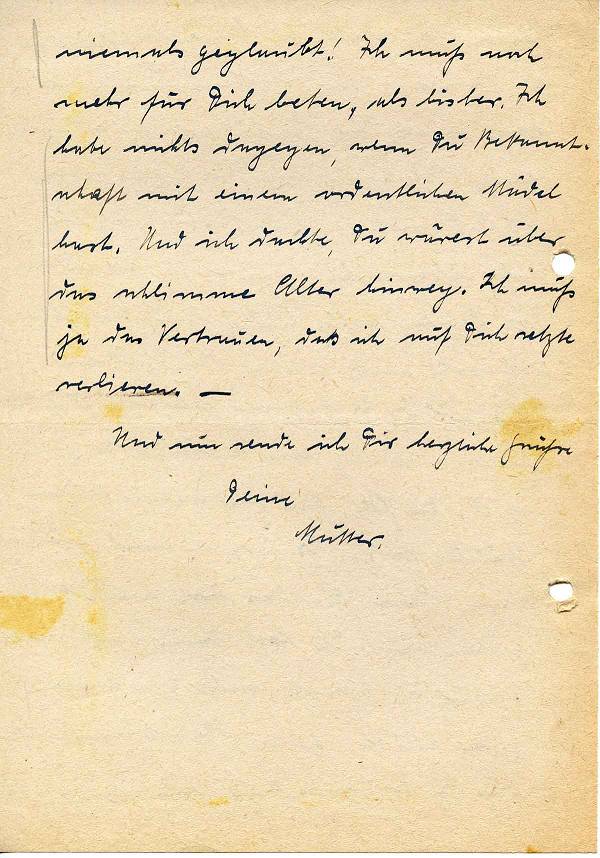 niemals geglaubt! Ich muß noch
mehr für Dich beten, als bisher. Ich
habe nichts dagegen, wenn Du Bekannt-
schaft mit einem ordentlichen Mädel
hast. Und ich dachte, Du wärest über
das schlimme Alter hinweg. Ich muß
ja das Vertrauen, daß ich auf Dich setzte
verlieren. —
Und nun sende ich Dir herzliche Grüße
Deine
Mutter.